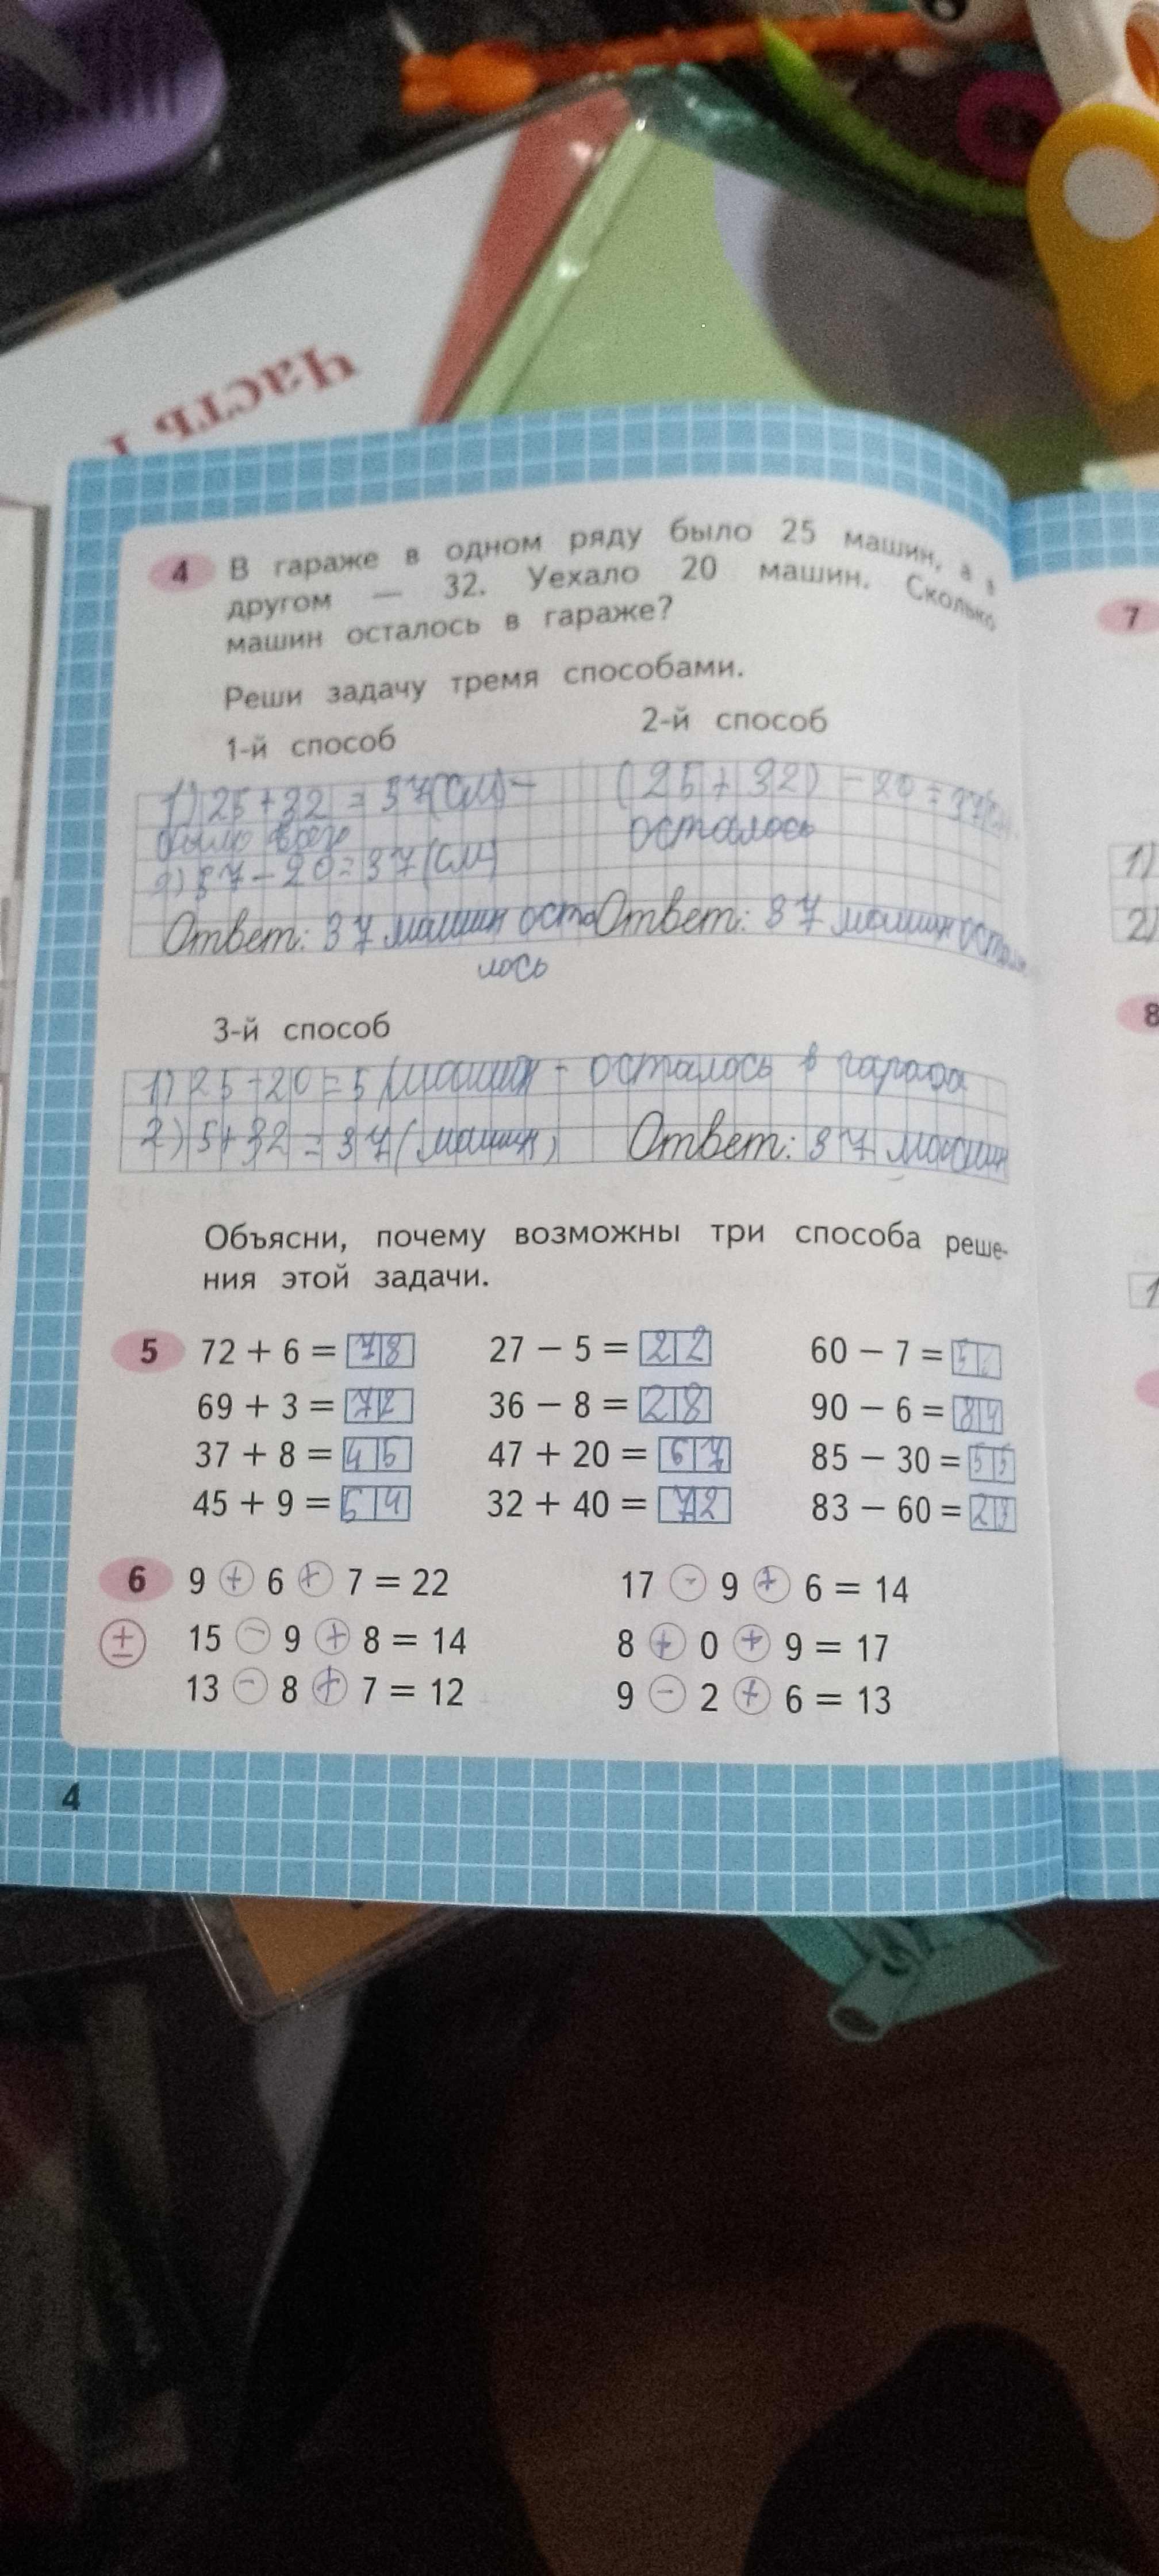 Часть 1
4 В гараже в одном ряду было 25 машин, а в
другом — 32. Уехало 20 машин. Сколько
машин осталось в гараже?
Реши задачу тремя способами.
1-й способ
2-й способ
1) 25 + 32 = 57(см) -
было всего
2) 57 - 20 = 37 (см)
Ответ: 37 машин оста
лось
(25 + 32) - 20 = 37
осталось
Ответ: 37 машин
3-й способ
1) 25 - 20 = 5 (машин - осталось в
2) 5 + 32 = 37 (машин) Ответ: 37 машин
Объясни, почему возможны три способа реше-
ния этой задачи.
5 72 + 6 = 78 27 − 5 = 22 60 − 7 =
69 + 3 = 72 36 − 8 = 28 90 − 6 = 84
37 + 8 = 45 47 + 20 = 67 85 − 30 = 55
45 + 9 = 54 32 + 40 = 72 83 − 60 = 23
6 9 + 6 + 7 = 22 17 - 9 + 6 = 14
± 15 - 9 + 8 = 14 8 + 0 + 9 = 17
13 - 8 + 7 = 12 9 - 2 + 6 = 13
4
7
1)
2)
8
1